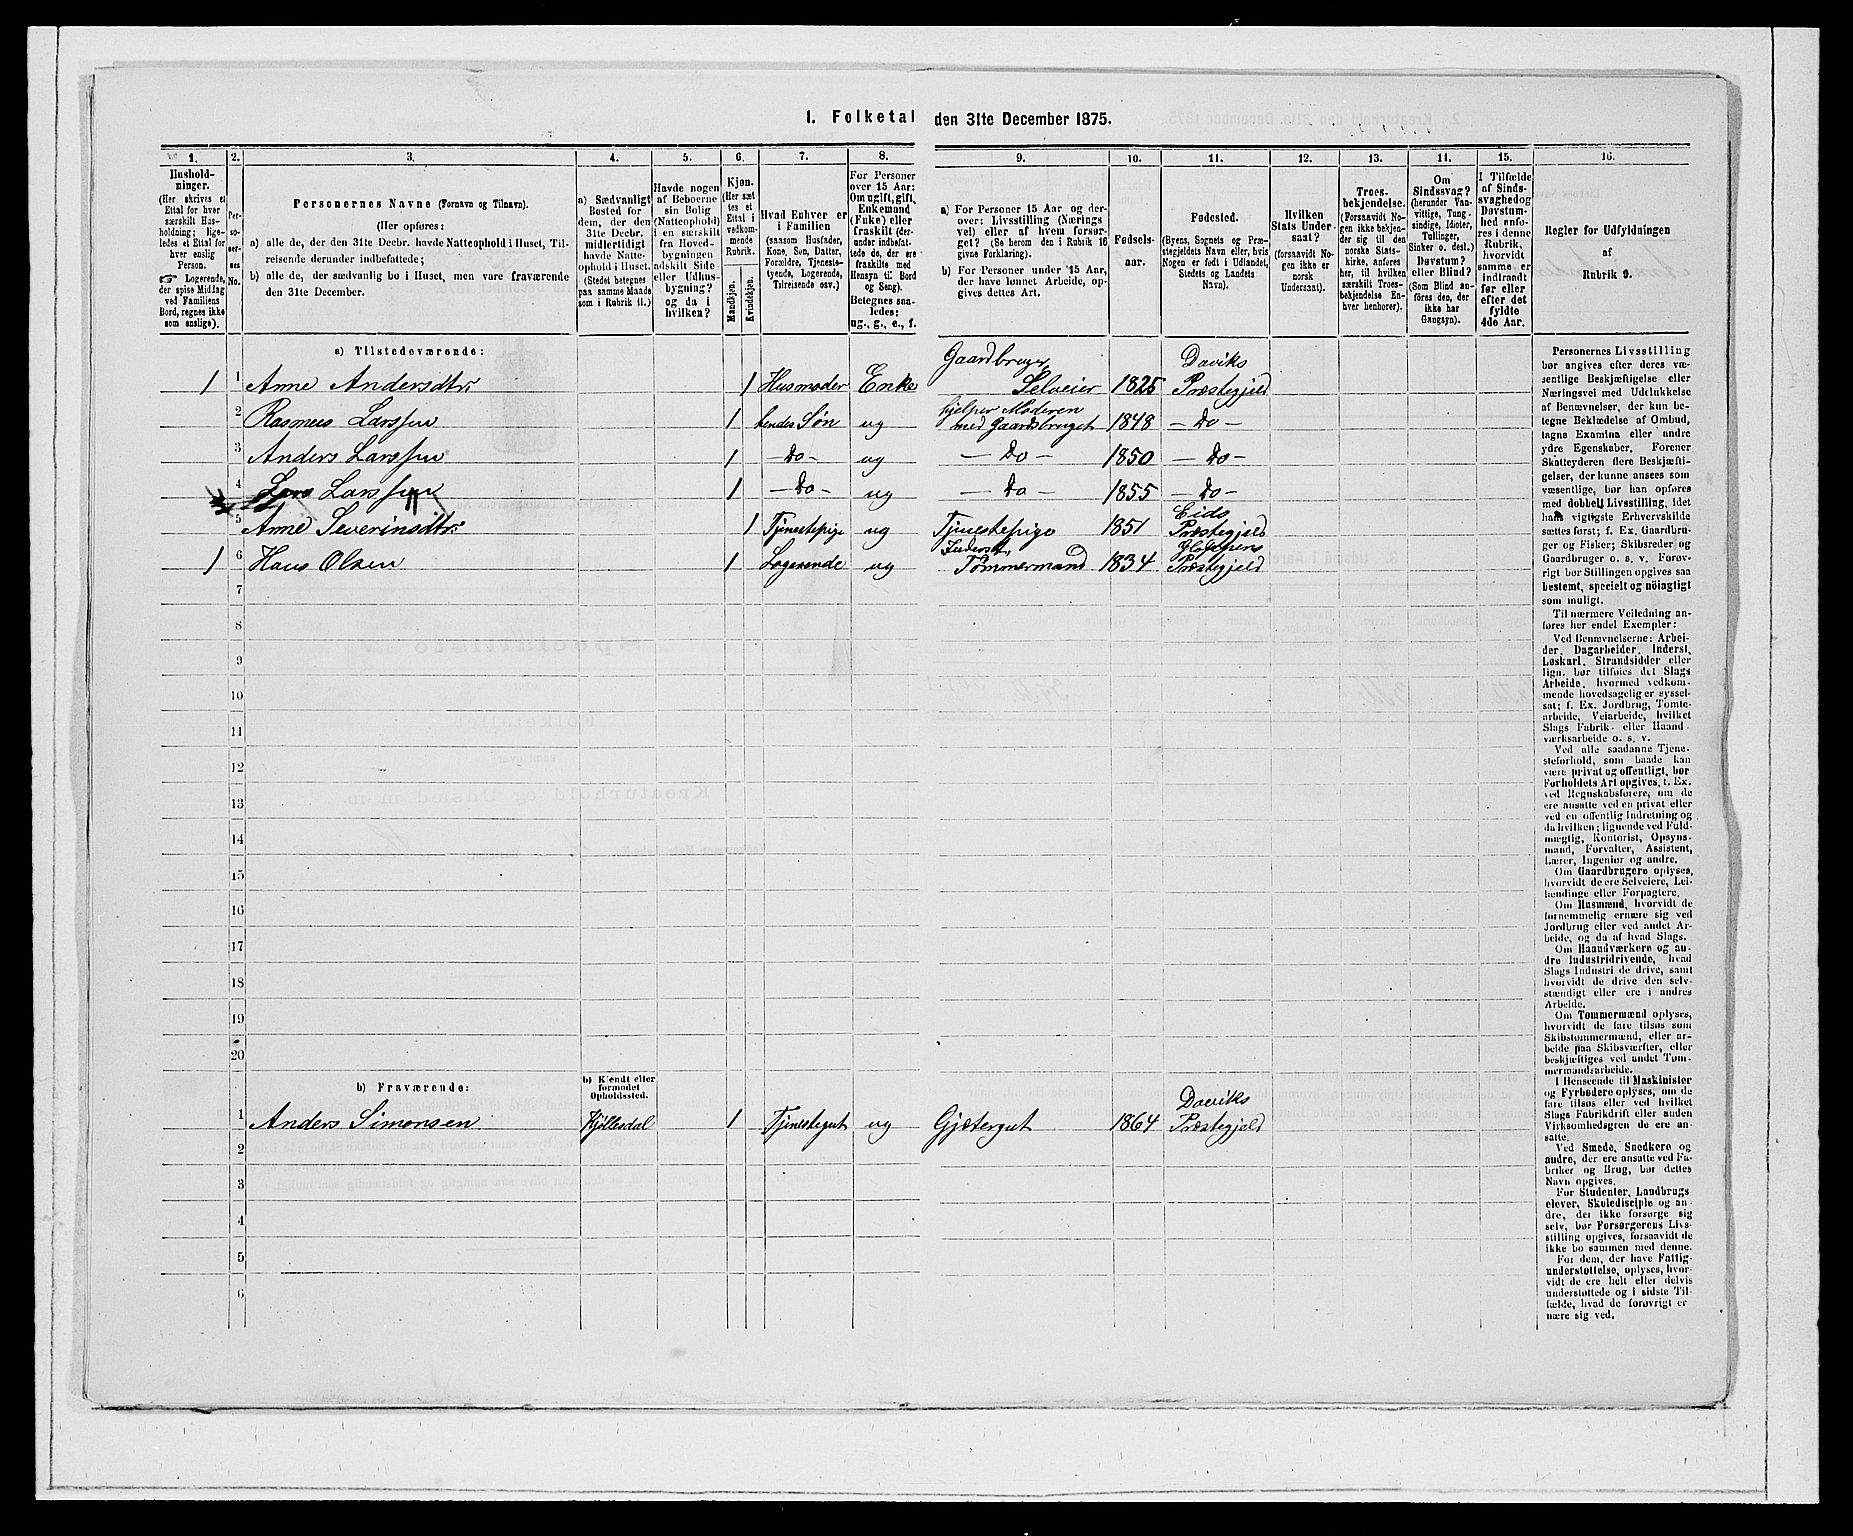 1. Folketal den 31te December 1875.
1.
2.
3.
4.
5.
6.
7.
8.
9.
10.
11.
12.
13.
14.
15.
16.
Hushold-
ninger.
(Her skrives et
Ettal for hver
særskilt Hus-
holdning; lige-
ledes et Ettal for
hver enslig
Person.
☞ Logerende,
der spise Middag
ved Familiens
Bord, regnes ikke
som enslige).
Per-
so-
ner-
nes
No.
Personernes Navne (Fornavn og Tilnavn).
(Her opføres:
a) alle de, der den 31te Decbr. havde Natteophold i Huset, Til-
reisende derunder indbefattede;
b) alle de, der sædvanlig bo i Huset, men vare fraværende
den 31te December.
a) Sædvanligt
Bosted for
dem, der den
31te Decbr.
midlertidigt
havde Natte-
ophold i Huset.
(Stedet betegnes
paa samme Maade
som i Rubrik 11.)
Havde nogen
af Beboerne
sin Bolig
(Natteophold)
i en særskilt
fra Hoved-
bygningen
adskilt Side
eller Udhus-
bygning?
og da i
hvilken?
Kjøn.
(Her sæt-
tes et
Ettal i
vedkom-
mende
Rubrik.
Mandkjøn.
Kvindekjøn.
Hvad Enhver er
i Familien
(saasom Husfader,
Kone, Søn, Datter,
Forældre, Tjeneste-
tyende, Logerende,
Tilreisende osv.)
For Personer
over 15 Aar:
Om ugift, gift,
Enkemand
(Enke) eller
fraskilt (der-
under indbefat-
tede de, der ere
fraskilte med
Hensyn til Bord
og Seng).
Betegnes saa-
ledes:
ug., g., e., f.
a) For Personer 15 Aar og der-
over: Livsstilling (Nærings
vei) eller af hvem forsør-
get? (Se herom den i Rubrik 16
givne Forklaring).
b) For Personer under 15 Aar,
der have lønnet Arbeide, op-
gives dettes Art.
Fødsels-
aar.
Fødested.
(Byens, Sognets og Præ-
stegjeldets Navn eller, hvis
Nogen er født i Udlandet,
Stedets og Landets
Navn).
Hvilken
Stats Under-
saat?
(forsaavidt No-
gen ikke er
norsk
Undersaat).
Troes-
bekjendelse.
(Forsaavidt No-
gen ikke bekjen-
der sig til den
norske Stats-
kirke, anføres
her, til hvilken
særskilt Troes-
bekjendelse En-
hver henhører).
Om
Sindssvag?
(herunder Van-
vittige, Tung-
sindige, Idioter,
Tullinger,
Sinker o. desl.)
Døvstum?
eller Blind?
(Som Blind an-
føres den, der
ikke har
Gangsyn).
I Tilfælde
af Sinds-
svaghed og
Døvstum-
hed anfø-
res i denne
Rubrik,
hvorvidt
samme er
indtraadt
før eller
efter det
fyldte
4de Aar.
Regler for Udfyldningen
af
Rubrik 9.
a) Tilstedeværende:
1 1 Anne Andersdtr. 1 Husmoder Enke Gaardbruger Selveier 1825 Daviks Præstegjeld
2 Rasmus Larssen 1 hendes Søn ug hjelper Moderen med Gaardsbruget 1848 — Do —
3 Anders Larssen 1 — Do — ug — Do — 1850 — Do —
4 Lars Larssen 1 — Do — ug — Do — 1855 — Do —
5 Anne Severinsdtr. 1 Tjenestepige ug Tjenestepige 1851 Eids Præstegjeld
1 6 Hans Olsen 1 Logerende ug Inderst, Tømmermand 1834 Præstegjeld
7
8
9
10
11
12
13
14
15
16
17
18
19
20
b) Fraværende:
b) Kjendt eller
formodet
Opholdssted.
1 Anders Simonsen Hjøllesdal 1 Tjenestegut ug Gjætergut 1864 Daviks Præstegjeld
2
3
4
5
6
Personernes Livsstilling
bør angives efter deres væ-
sentlige Beskjæftigelse eller
Næringsvei med Udelukkelse
af Benævnelser, der kun be-
tegne Beklædelse af Ombud,
tagne Examina eller andre
ydre Egenskaber. Forener
Skatteyderen flere Beskjæfti-
gelser, der kunne ansees som
væsentlige, bør han opføres
med dobbelt Livsstilling, idet
hans vigtigste Erhvervskilde
sættes først; f. Ex. Gaardbru-
ger og Fisker; Skibsreder og
Gaardbruger o. s. v. Forøv-
rigt bør Stillingen opgives saa
bestemt, specielt og nøiagtigt
som muligt.
Til nærmere Veiledning an-
føres her endel Exempler:
Ved Benævnelserne: Arbei-
der, Dagarbeider, Inderst,
Løskarl, Strandsidder eller
lign. bør tilføies det Slags
Arbeide, hvormed vedkom-
mende hovedsagelig er syssel-
sat; f. Ex. Jordbrug, Tomte-
arbeide, Veiarbeide, hvilket
Slags Fabrik- eller Haand-
værksarbeide o. s. v.
Ved alle saadanne Tjene-
steforhold, som baade kan
være privat og offentligt, bør
Forholdets Art opgives, t. Ex.
ved Regnskabsførere, om de
ere ansatte ved en privat eller
ved en offentlig Indretning og
da hvilken; lignende ved Fuld-
mægtig, Kontorist, Opsyns-
mand, Forvalter, Assistent,
Lærer, Ingeniør og andre.
Om Gaardbrugere oplyses,
hvorvidt de ere Selveiere, Lei-
lændinge eller Forpagtere.
Om Husmænd, hvorvidt de
fornemmelig ernære sig ved
Jordbrug eller ved andet Ar-
beide, og da af hvad Slags.
Om Haandværkere og an-
dre Industridrivende, hvad
Slags Industri de drive, samt
hvorvidt de drive den selv-
stændigt eller ere i andres
Arbeide.
Om Tømmermænd oplyses,
hvorvidt de fare tilsøs som
Skibstømmermænd, eller ar-
beide paa Skibsværfter, eller
beskjæftiges ved andet Tøm-
mermandsarbeide.
I Henseende til Maskinister
og Fyrbødere oplyses, om de
fare tilsøs eller ved hvilket
Slags Fabrikdrift eller anden
Virksomhedsgren de ere an-
satte.
Ved Smede, Snedkere og
andre, der ere ansatte ved Fa-
briker og Brug, bør dettes
Navn opgives.
For Studenter, Landbrugs
elever, Skoledisciple og an-
dre, der ikke forsørge sig
selv, bør Forsørgerens Livs-
stilling opgives, forsaavidt de
ikke bo sammen med denne.
For dem, der have Fattig-
understøttelse, oplyses, hvor-
vidt de ere helt eller delvis
understøttede og i sidste Til-
fælde, hvad de forøvrigt er
nære sig ved.